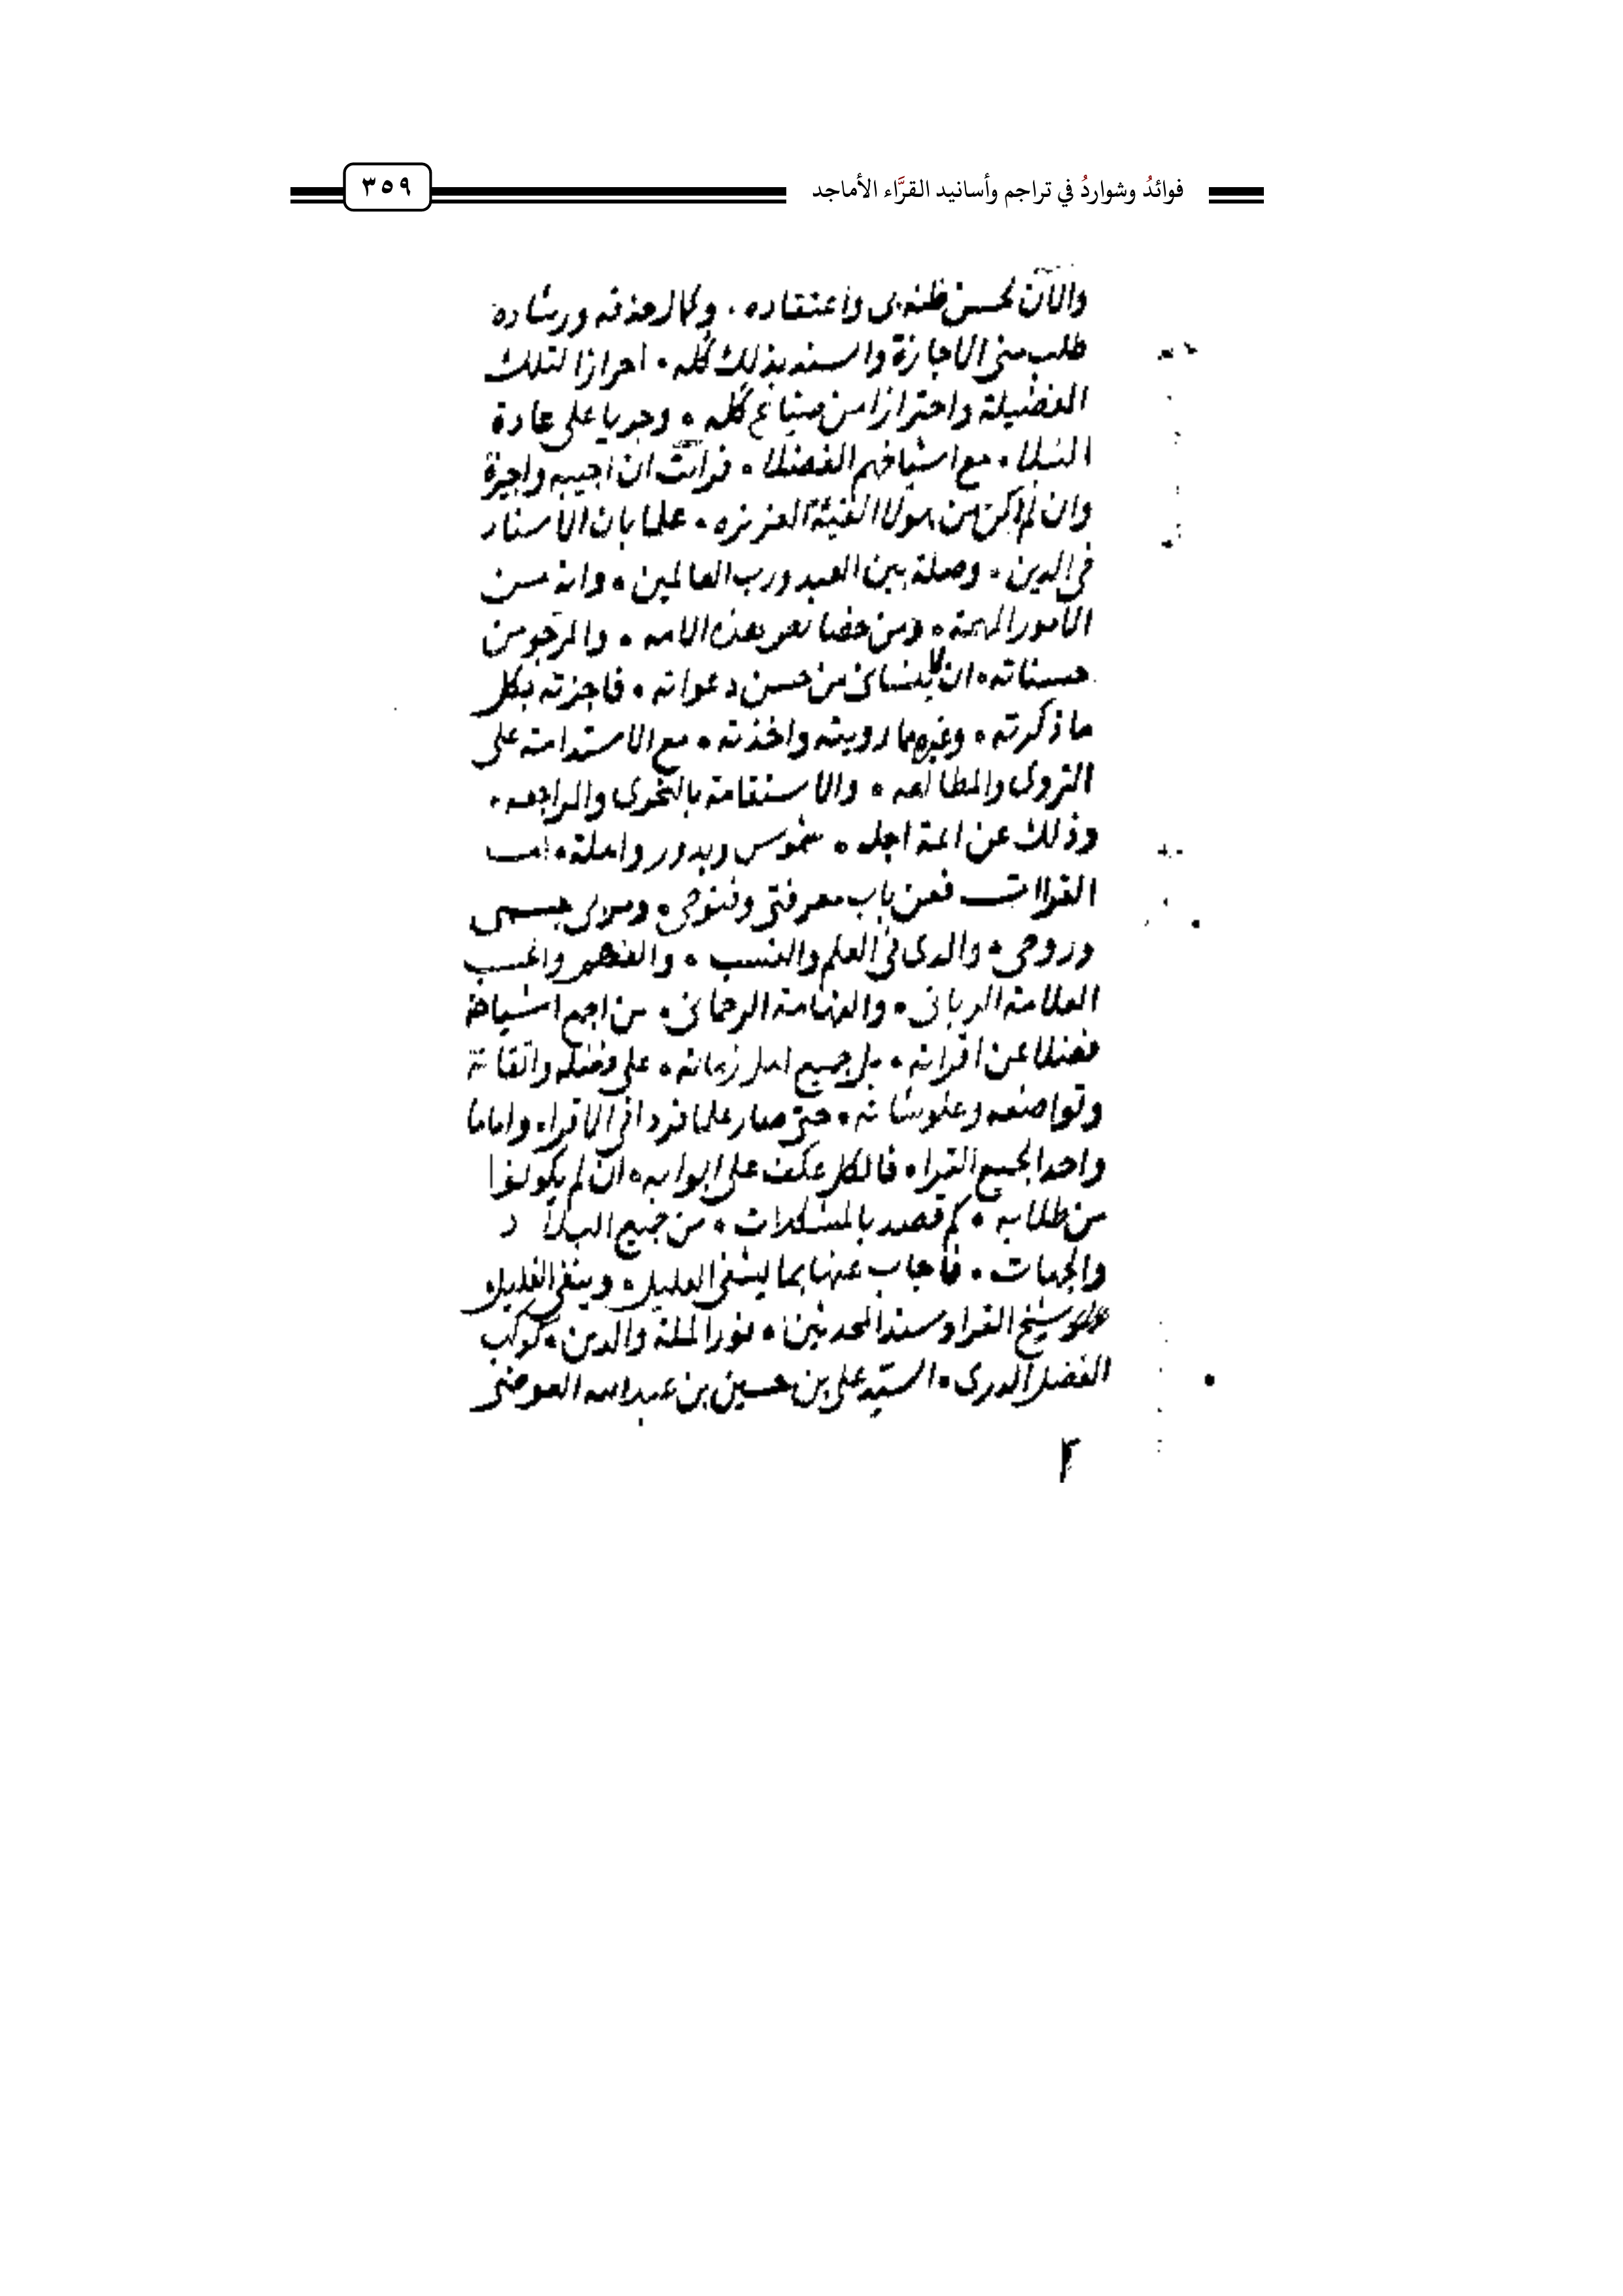 فوائدُ وشواردُ في تراجم وأسانيد القرَّاء الأماجد
٣٥٩
والان لحسن ظنه بى واعتقاده . ولكمال حذقه ورشاده
طلب منى الاجازة والسند بذلك كله . احرازا لتلك
الفضيلة واحترازا من ضياع كله . وجريا على عادة
النبلا . مع اشياخهم الفضلا . فرأيت ان اجيبه واجيزه
وان لم اكن من هولا الفئة العزيزه . علما بان الاسناد
فى الدين . وصلة بين العبد ورب العالمين . وانه من
الامور المهمة . ومن خصائص هذه الامه . والمرجو من
حسناته . ان لا ينسانى من حسن دعواته . فاجزته بكل
ما ذكرته . وغيره مما رويته واخذته . مع الاستدامة على
التروى والمطالعه . والاستقامة بالتحرى والمراجعه .
وذلك عن ائمة اجله . شموس وبدور واهلة . اما
القراات فعن باب معرفتى وفتوحى . ومربى جسمى
وروحى . والدى فى العلم والنسب . والفهم والحسب
العلامة الربانى . والفهامة الرحمانى . من اجمع اشياخه
فضلا عن اقرانه . بل جميع اهل زمانه . على فضله واتقانه
وتواضعه وعلو شانه . حتى صار علما فردا فى الاقرا . واماما
واحدا لجميع القرا . فالكل عكف على ابوابه . ان لم يكونوا
من طلابه . كم قصد بالمشكلات . من جميع البلاد
والجهات . فاجاب عنها بما يشفى العليل . وينفى الغليل .
شيخ القرا وسند المحدثين . نور الملة والدين . كوكب
الفضل الدرى . السيد على بن حسين بن عبدالله العوضى